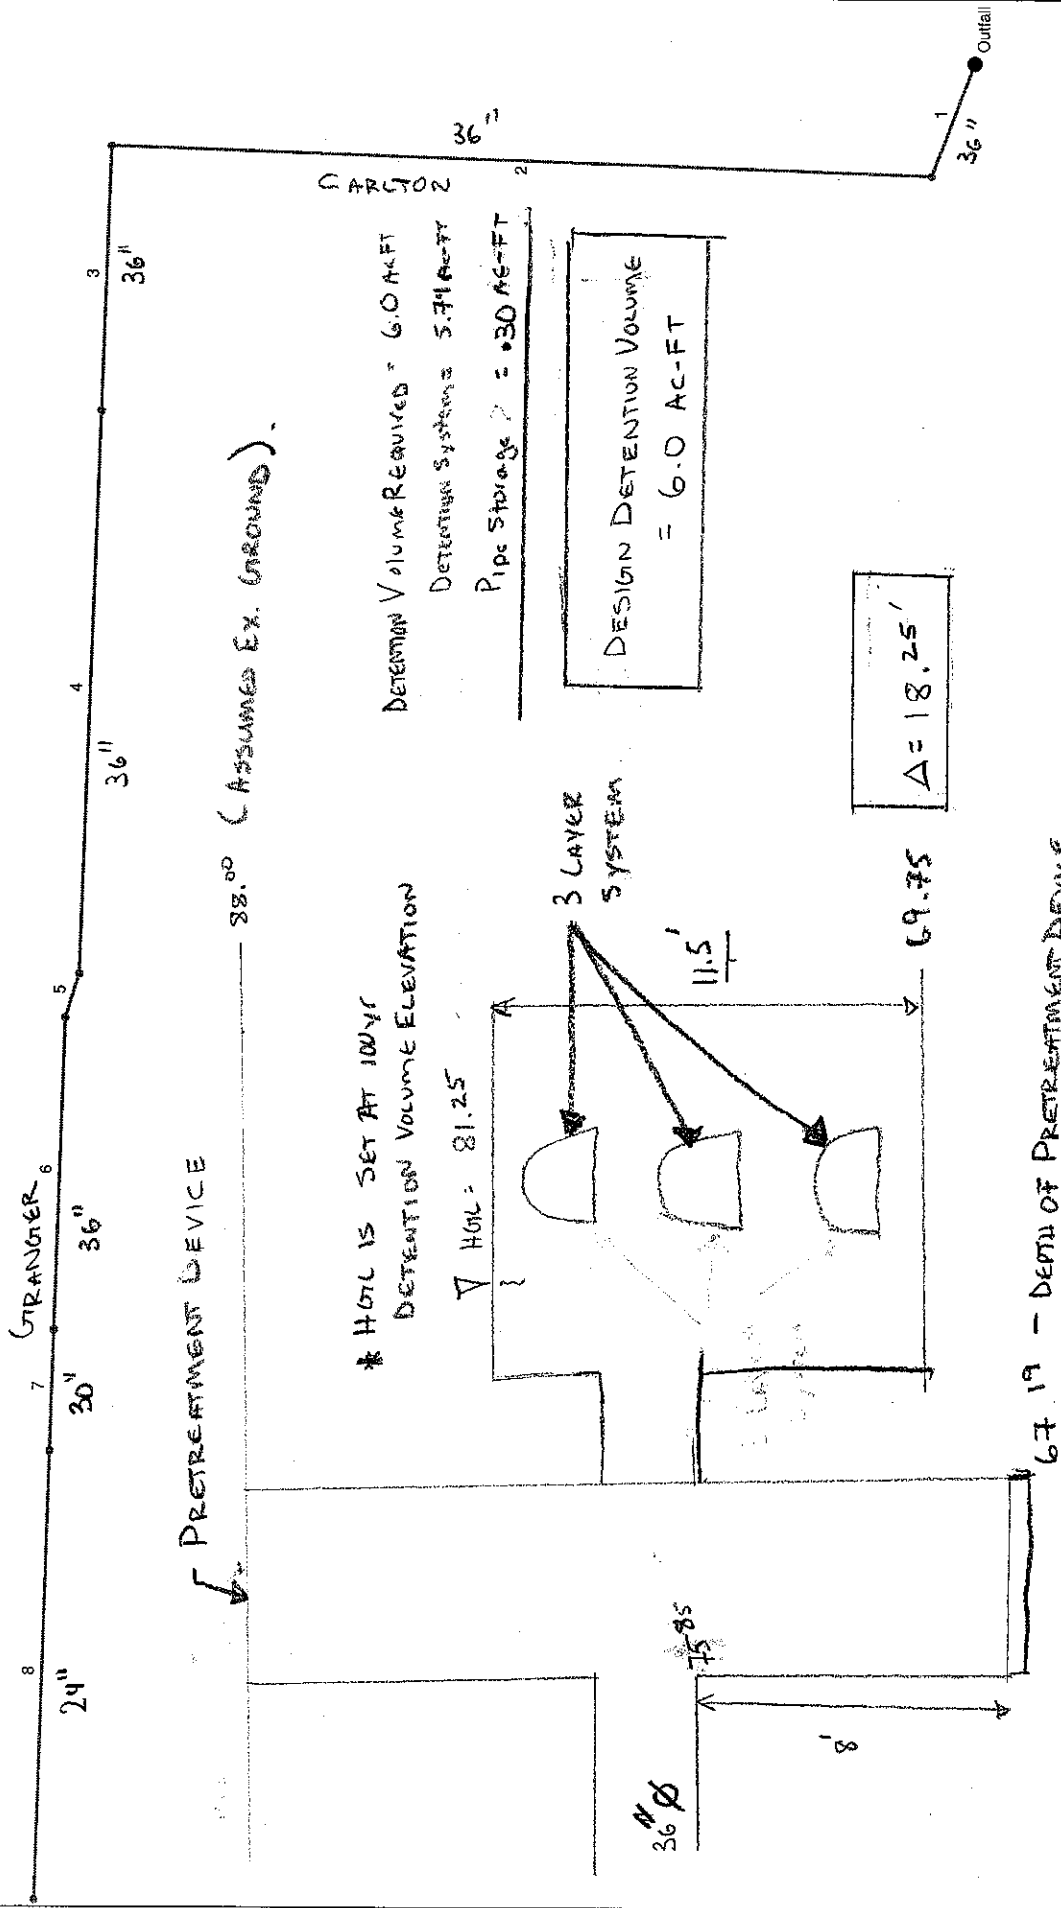 8
24"
7
30"
GRANGER
6
36"
5
4
36"
3
36"
CARLTON
2
36"
1
36"
Outfall
PRETREATMENT DEVICE
88.00 (ASSUMED EX. GROUND).
* HGL IS SET AT 100yr
DETENTION VOLUME ELEVATION
HGL = 81.25
DETENTION Volume REQUIRED = 6.0 AC-FT
DETENTION System = 5.71 AC-FT
Pipe Storage = .30 AC-FT
DESIGN DETENTION VOLUME
= 6.0 AC-FT
3 LAYER
SYSTEM
11.5'
69.75
Δ = 18.25'
36"Ø
75.85
8'
67.19 - DEPTH OF PRETREATMENT DEVICE